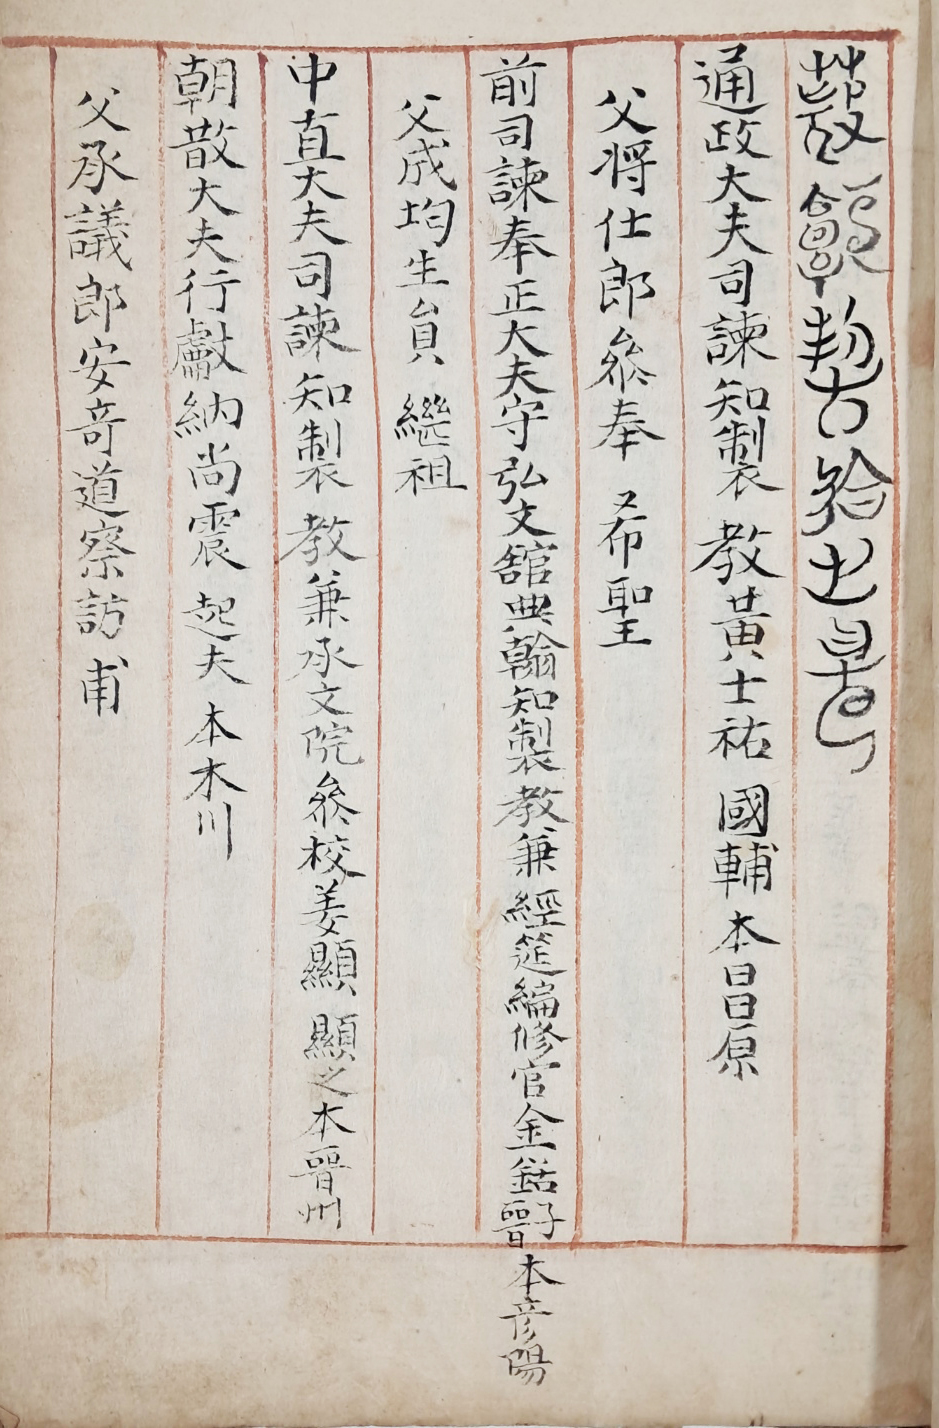 通政大夫司諫知製 教黃士祐 國輔 本昌原
父將仕郎叅奉 希聖
前司諫奉正大夫守弘文舘典翰知製教兼 經筵編修官金鋕 子晉 本彦陽
父成均生員 繼祖
中直大夫司諫 知製 教兼承文院叅校姜顯 顯之本晋州
朝散大夫行獻納尚震 起夫 本木川
父承議郎安竒道察訪 甫